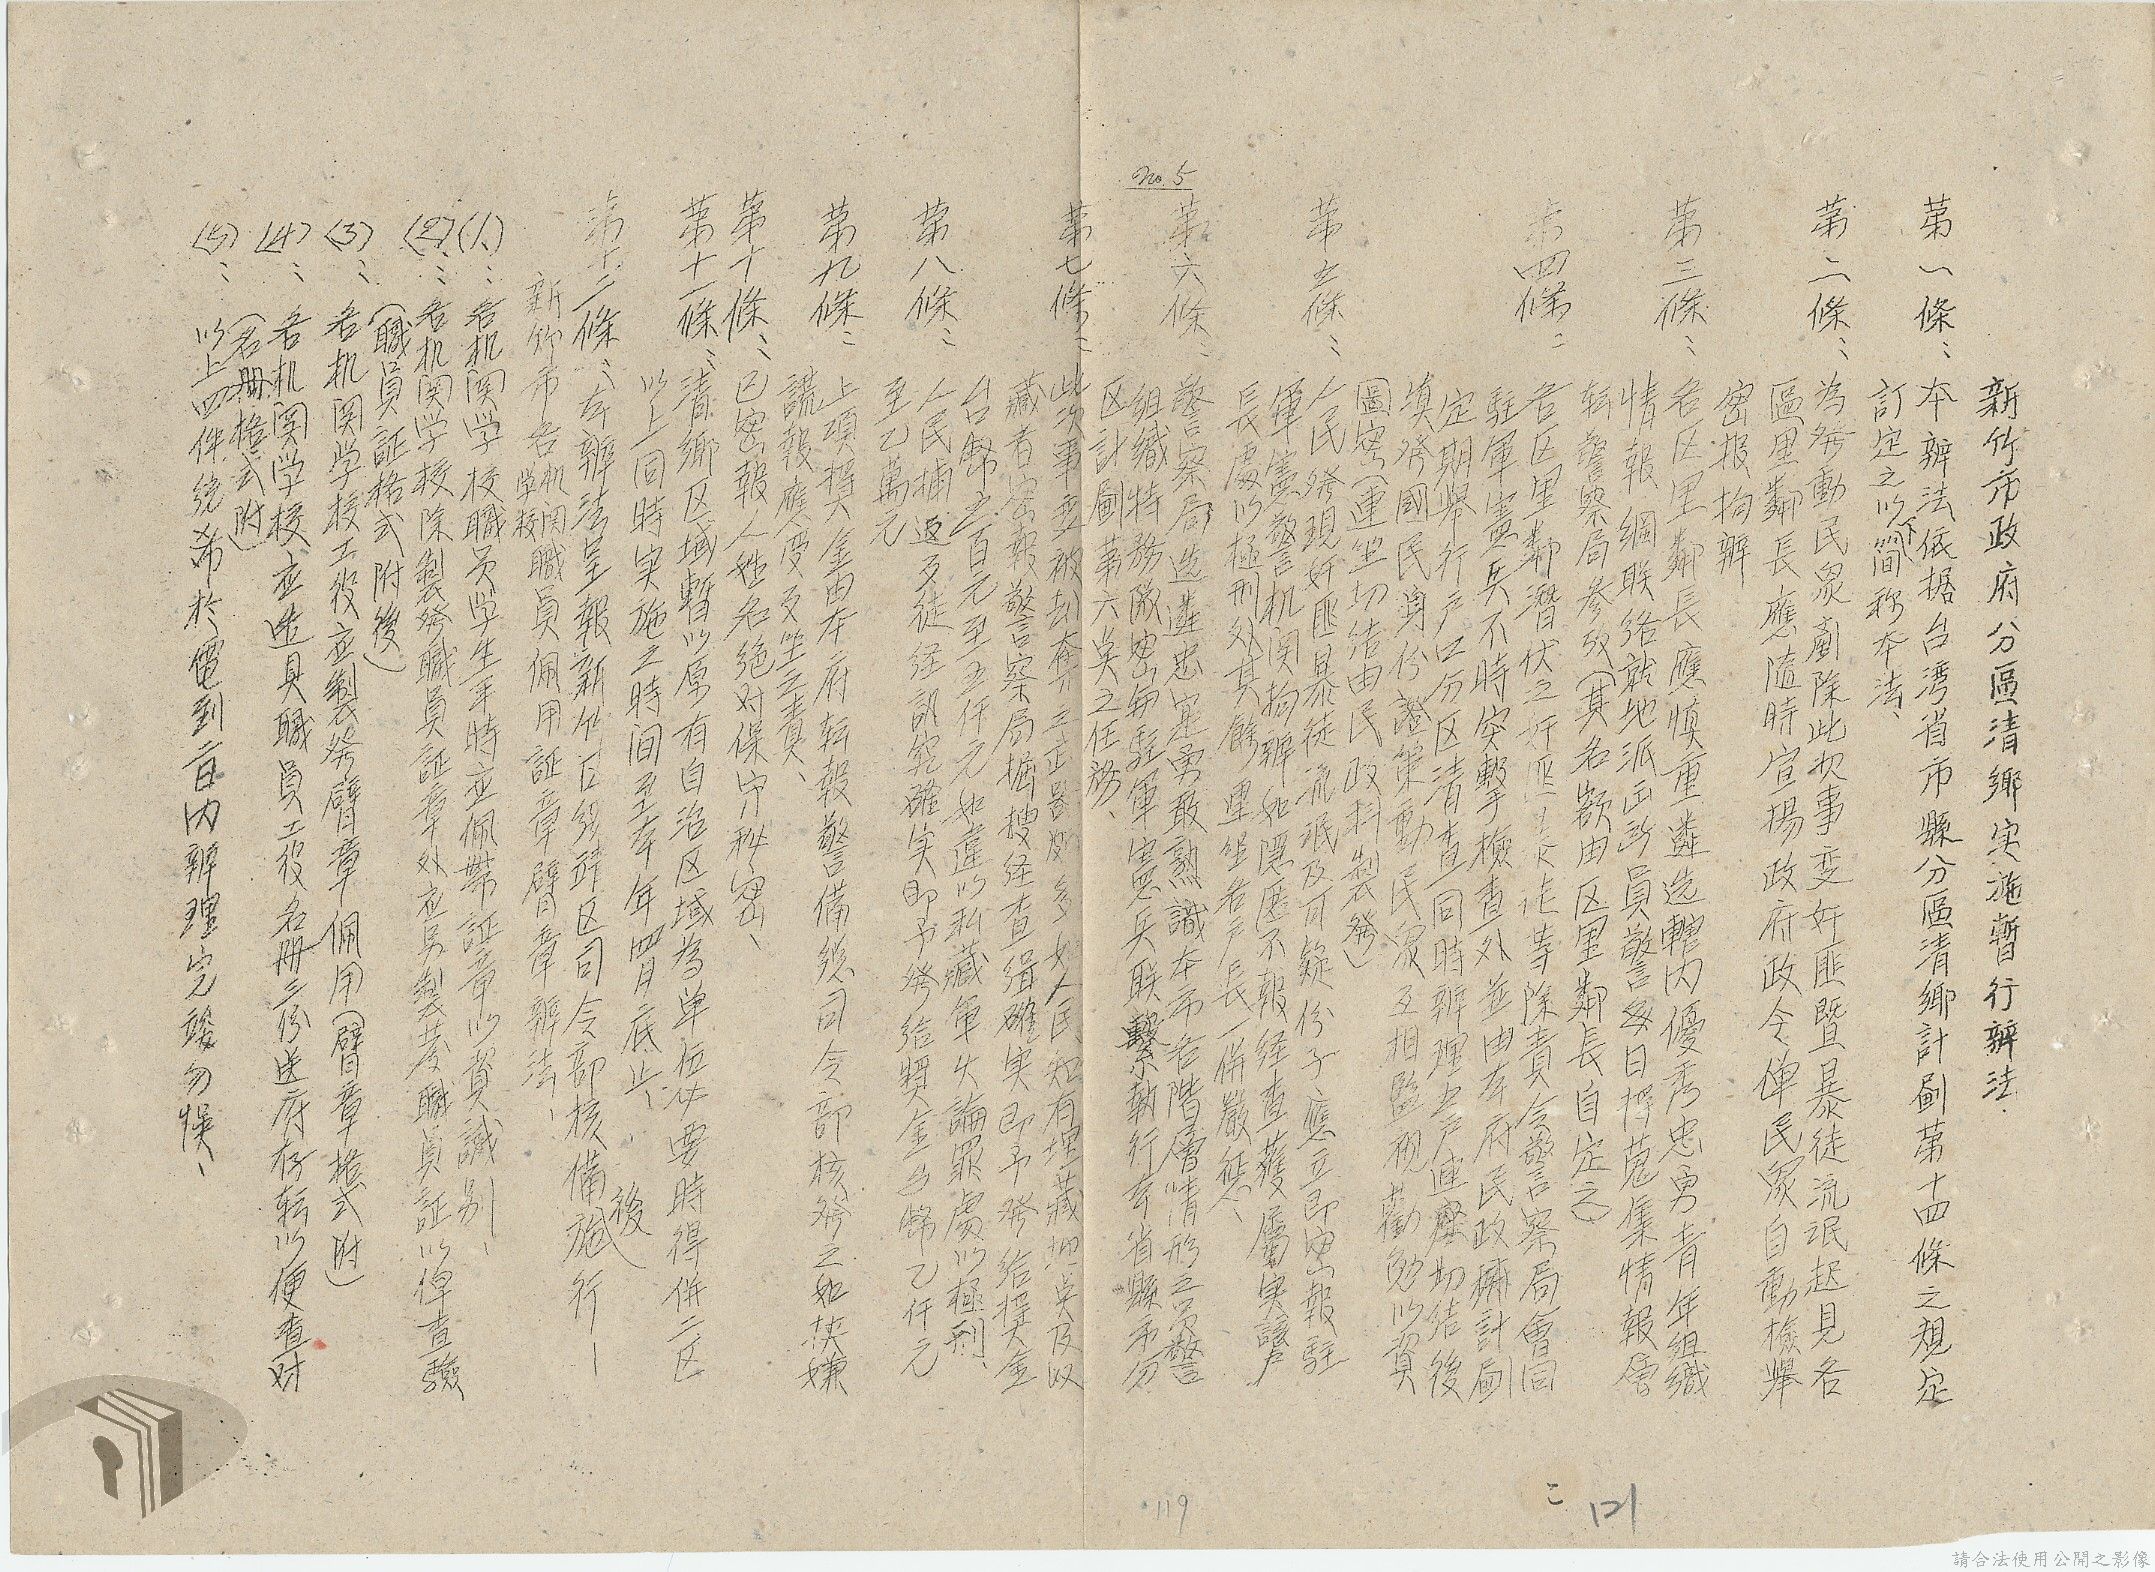 新竹市政府分區清鄉实施暫行辦法.
第一條：本辦法依据台湾省市縣分區清鄉計劃第十四條之規定
訂定之以下簡称本法、
第二條：為発動民眾剷除此次事变奸匪暨暴徒流氓起見各
區里鄰長應隨時宣揚政府政令俾民眾自動檢舉
密报拘辦
第三條：各区里鄰長應慎重遴选轄内優秀忠勇青年組織
情報網联络就地派出所員警每日採蒐集情報層
転警察局参攷(其名額由区里鄰長自定之)
第四條：各区里鄰潜伏之奸匪 徒等除責令警察局會同
駐軍憲兵不時突擊檢查外並由本府民政科計劃
定期舉行户口分区清查同時辦理五户連座切结後
填発國民身份證策動民眾互相監視勸勉以資
圖密(連坐切结由民政科製発)
第五條：人民発現奸匪暴徒流氓及可疑份子應立即密報駐
軍憲警机関拘辦如隱匿不報経查獲屬実該户
長處以極刑处其餘連坐各户長一併嚴懲、
第六條：警察局选遴忠实勇敢熟識本市各階層情形之员警
組織特務隊密每駐軍憲兵联繫執行本省縣市分
区計劃第六 之任務、
第七條：此次事变被刼奪 武器 多如人民知有埋藏地 及収
藏者密報警察局掘搜経查緝確実即予発给獎金
台幣五百元至五仟元如違以私藏軍火論罪處以極刑、
第八條：人民捕 歹徒经訊究確实即予発给獎金台幣乙仟元
至乙萬元
第九條：上項獎金由本府転報警備総司令部核発之如挾嫌
謊報應受反坐之責、
第十條：已密報人姓名絶对保守秘密、
第十一條：清鄉区域暫以原有自治区域為单位必要時得併二区
以上同時実施之時间至本年四月底止、
第十二條：本辦法呈報新竹 绥靖区司令部核備後施行—
新竹市各机関学校職員佩用証章臂章辦法：
(1)：各机関学校職员学生平時应佩帶証章以資識別、
(2)：各机関学校除製発職員証章外应另製発職員証以俾查驗
(職員証格式附後)
(3)：各机関学校工役应製発臂章佩用(臂章格式附)
(4)：各机関学校应造具職員工役名册二份送府存転以便查对
(名册格式附)
(5)：以上四件统希於電到 日内辦理完竣勿悞、
no. 5
119
二
121
請合法使用公開之影像